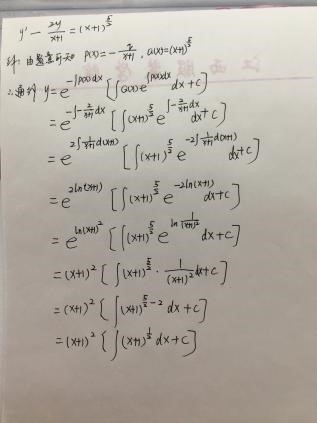 y' - 2y/(x+1) = (x+1)^(5/2)
解: 由题意可知 P(x) = -2/(x+1), Q(x) = (x+1)^(5/2)
∴通解 y = e^(-∫P(x)dx) [∫Q(x) e^(∫P(x)dx) dx + C]
= e^(-∫-2/(x+1) dx) [∫(x+1)^(5/2) e^(∫-2/(x+1) dx) dx + C]
= e^(2∫1/(x+1) d(x+1)) [∫(x+1)^(5/2) e^(-2∫1/(x+1) d(x+1)) dx + C]
= e^(2ln(x+1)) [∫(x+1)^(5/2) e^(-2ln(x+1)) dx + C]
= e^(ln(x+1)^2) [∫(x+1)^(5/2) e^(ln 1/(x+1)^2) dx + C]
= (x+1)^2 [∫(x+1)^(5/2) · 1/(x+1)^2 dx + C]
= (x+1)^2 [∫(x+1)^(5/2 - 2) dx + C]
= (x+1)^2 [∫(x+1)^(1/2) dx + C]